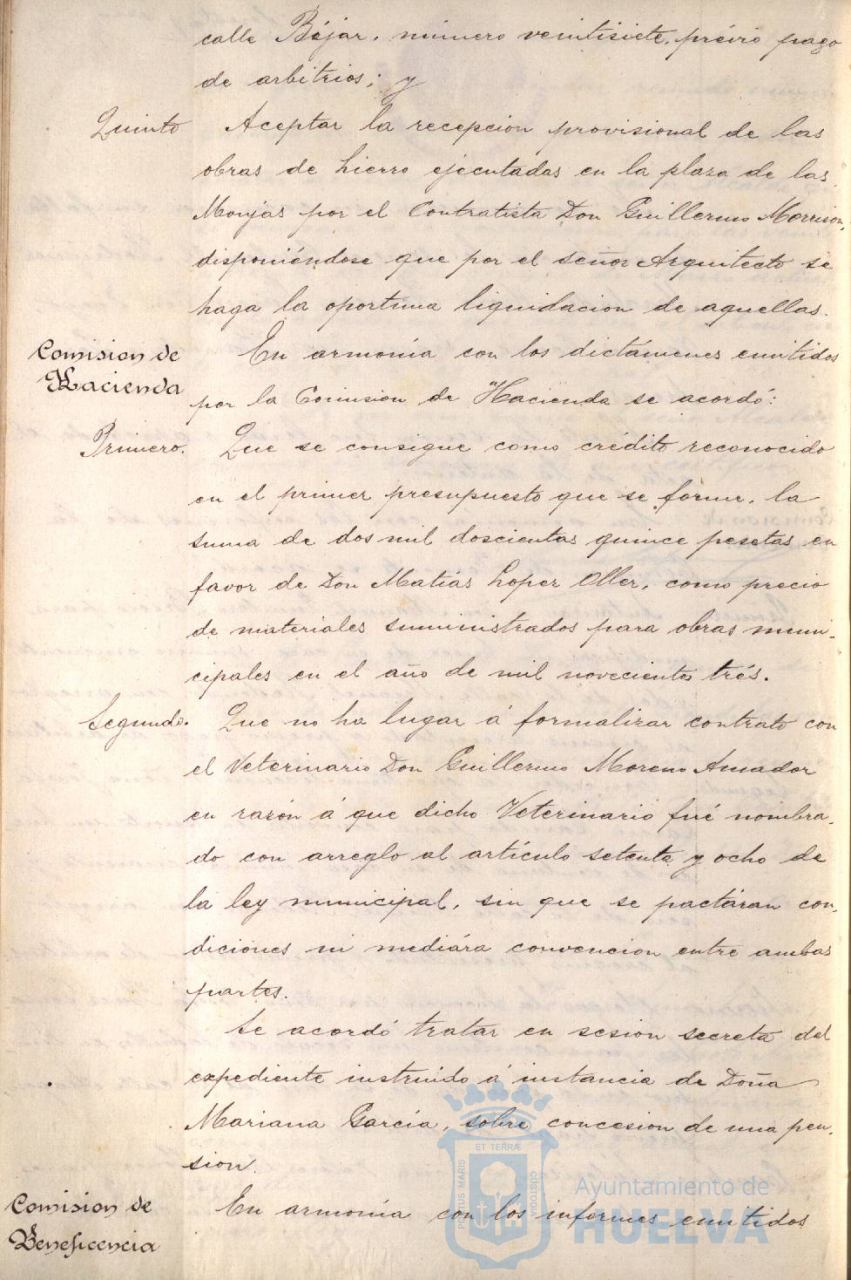 calle Béjar, número veintisiete, prévio pago
de arbitrios; y
Quinto Aceptar la recepcion provisional de las
obras de hierro ejecutadas en la plaza de las
Monjas por el Contratista Don Guillermo Morrison,
disponiéndose que por el señor Arquitecto se
haga la oportuna liquidacion de aquellas.
Comision de
Hacienda
En armonía con los dictámenes emitidos
por la Comision de Hacienda se acordó:
Primero. Que se consigue como crédito reconocido
en el primer presupuesto que se forme, la
suma de dos mil doscientas quince pesetas en
favor de Don Matías Lopez Oller, como precio
de materiales suministrados para obras muni-
cipales en el año de mil novecientos trés.
Segundo. Que no ha lugar á formalizar contrato con
el Veterinario Don Guillermo Moreno Amador
en razón á que dicho Veterinario fué nombra-
do con arreglo al artículo setenta y ocho de
la ley municipal, sin que se pactáran con-
diciones ni mediára convencion entre ambas
partes.
Se acordó tratar en sesion secreta del
expediente instruido á instancia de Doña
Mariana García, sobre concesion de una pen-
sion.
Comision de
Beneficencia
En armonía con los informes emitidos
PORTUS MARIS
ET TERRÆ
CUSTODIA
Ayuntamiento de
HUELVA